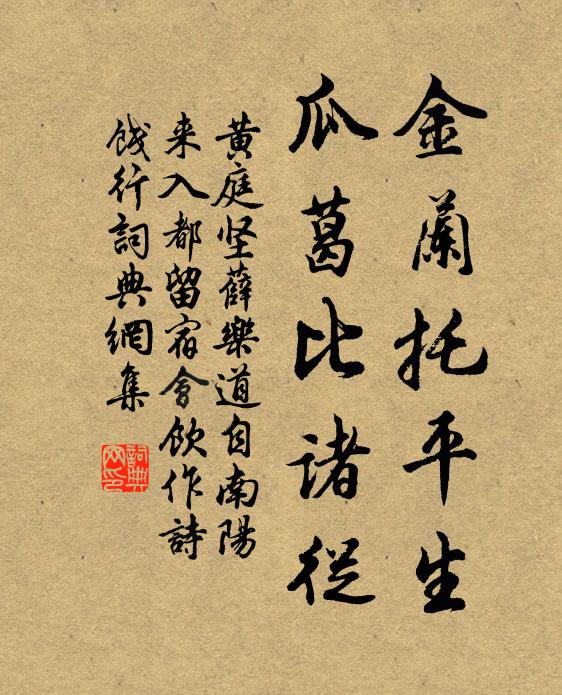 金蘭托平生
瓜葛比諸從
黄庭坚薛樂道自南陽
来入都留宿會飲作詩
餞行詞典網集
詞典
网印